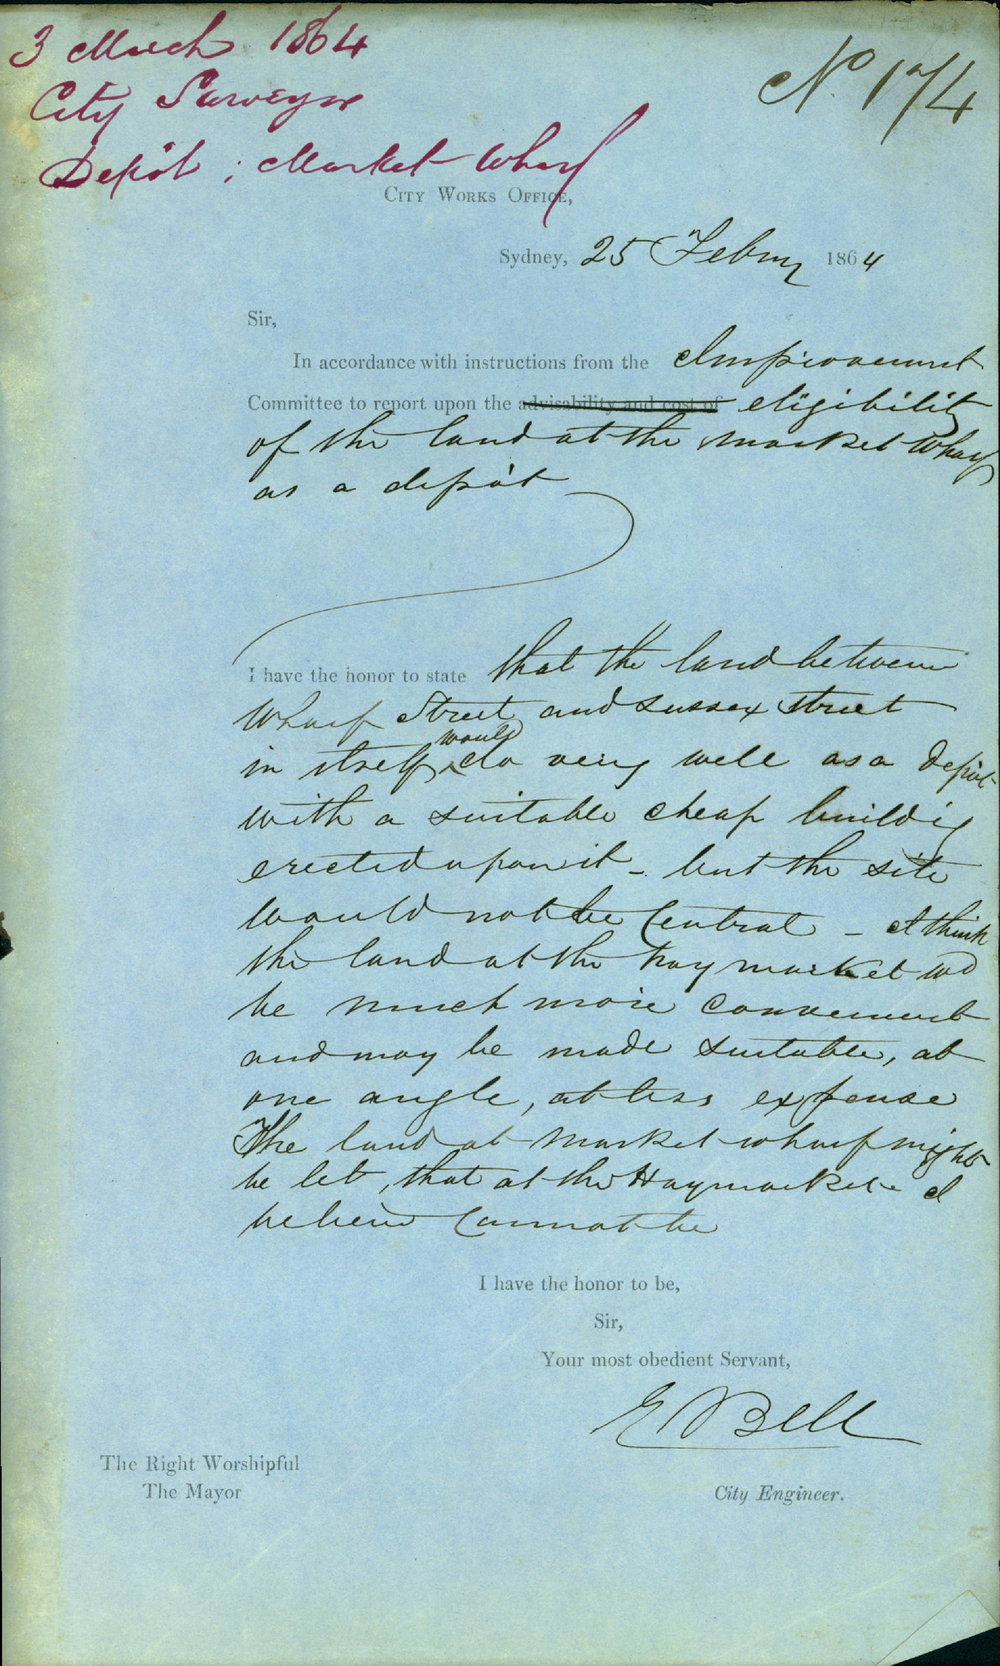 3 March 1864
No. 174
City Surveyor
Depôt ; Market Wharf
CITY WORKS OFFICE,
Sydney, 25 Febry 1864
Sir,
In accordance with instructions from the Improvement
Committee to report upon the advisability and cost of eligibility
of the land at the Market Wharf
as a depôt
I have the honor to state that the land between
Wharf Street and Sussex Street
would
in itself do very well as a Depôt
with a suitable cheap building
erected upon it - but the site
would not be Central - I think
the land at the haymarket wd
be much more convenient
and may be made suitable, at
one angle, at less expense
The land at Market wharf might
be let, that at the Haymarket I
believe cannot be
I have the honor to be,
Sir,
Your most obedient Servant,
E Bell
The Right Worshipful
The Mayor
City Engineer.